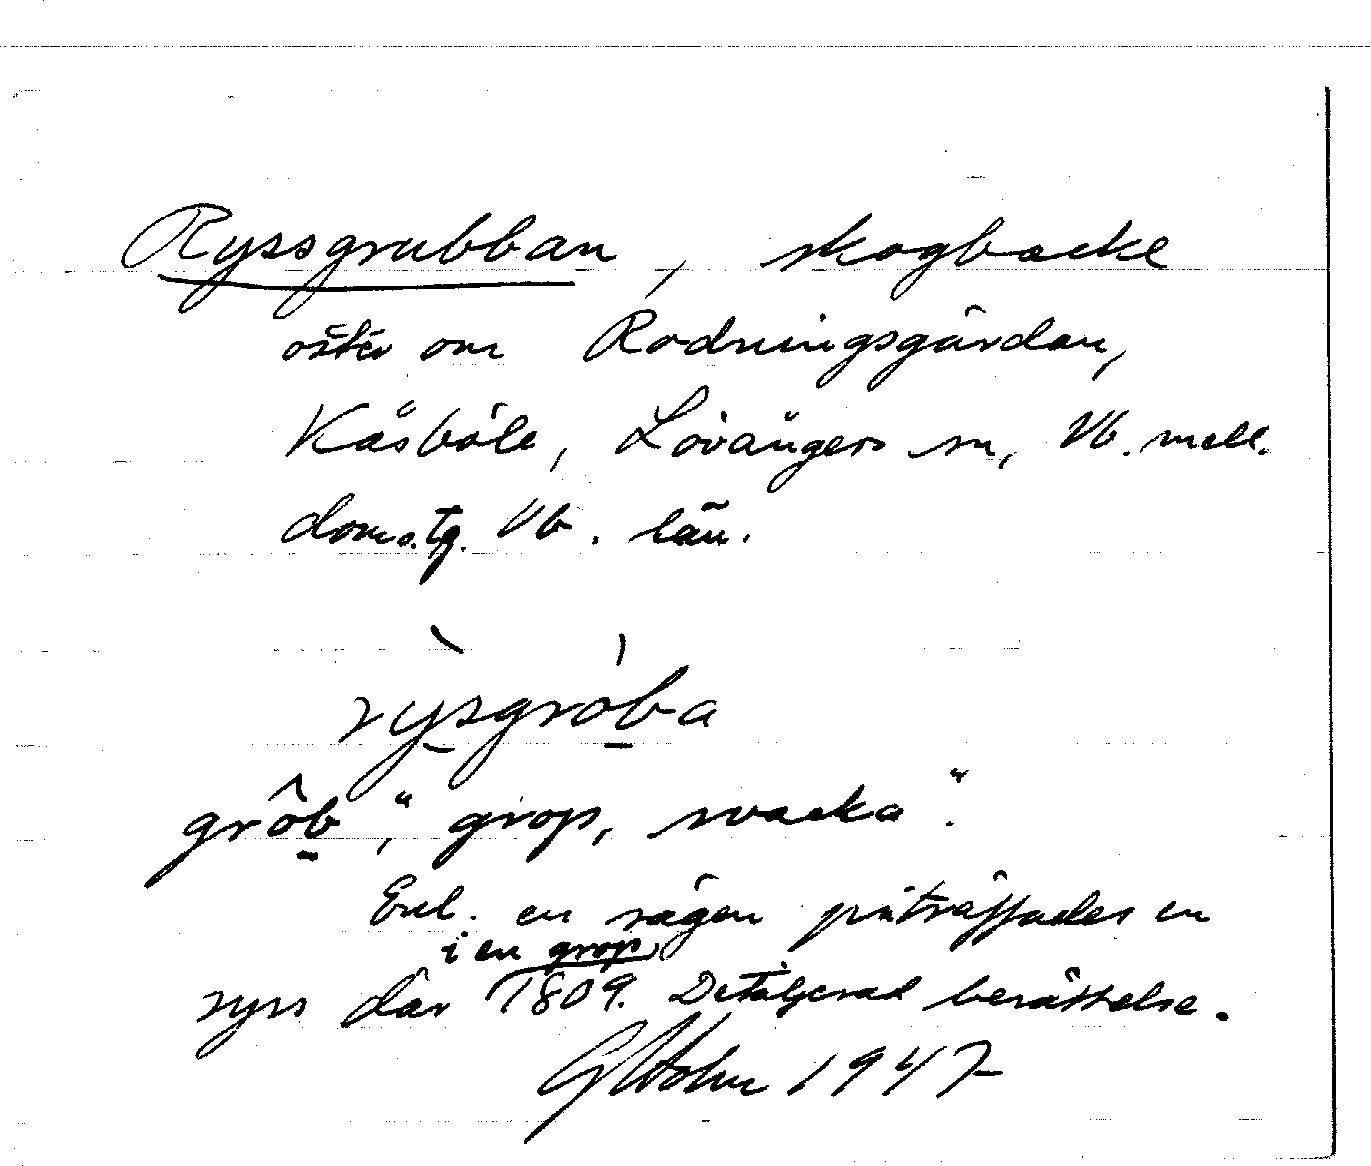 Ryssgrubban, skogbacke
öster om Rödningsgärdan,
Kåsböle, Lövångers sn, Vb. mell.
doms.tg. Vb. län.
rysgròba
grôb, "grop, svacka".
Enl. en sägen påträffades en
i en grop
ryss där 1809. Detaljerad berättelse.
Holm 1947